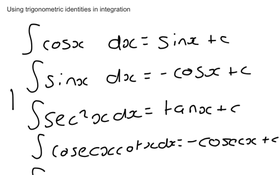 Using trigonometric identities in integration
∫ cosx dx = sinx + c
∫ sinx dx = - cosx + c
∫ sec²x dx = tanx + c
∫ cosecx cotx dx = - cosecx + c